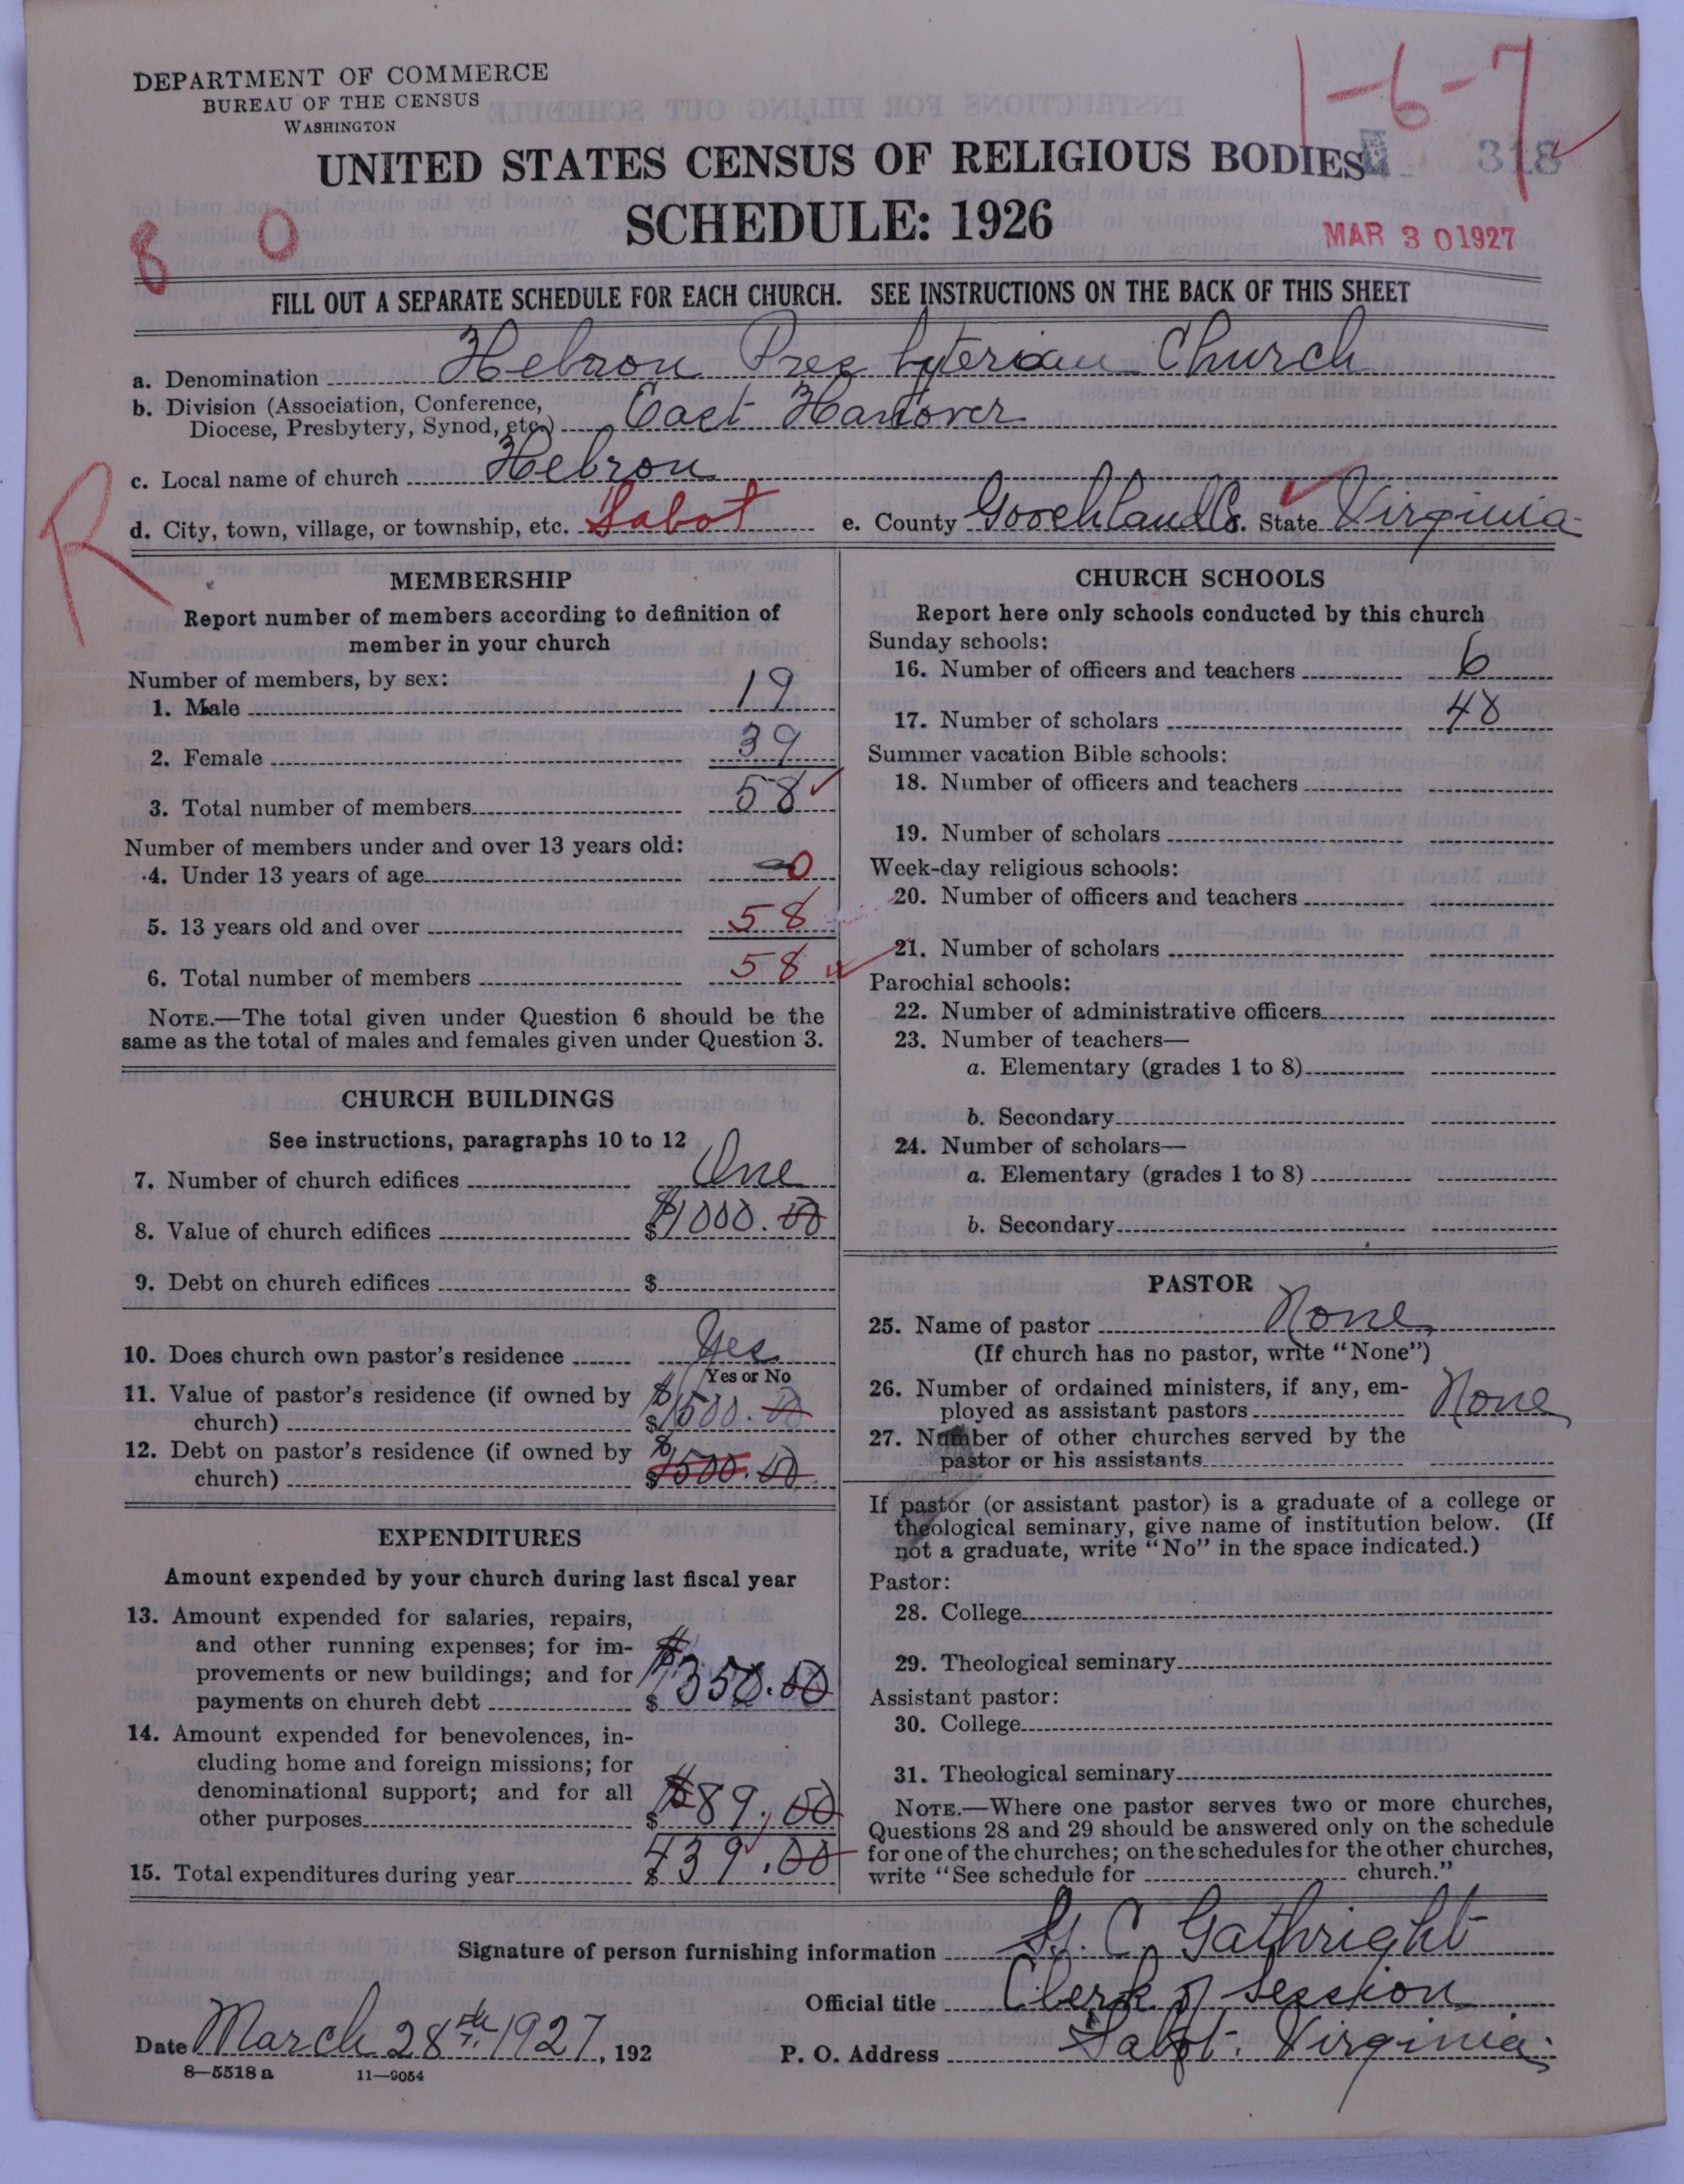 DEPARTMENT OF COMMERCE
BUREAU OF THE CENSUS
WASHINGTON
1-6-7
UNITED STATES CENSUS OF RELIGIOUS BODIES
318
SCHEDULE: 1926
8 0
MAR 30 1927
FILL OUT A SEPARATE SCHEDULE FOR EACH CHURCH. SEE INSTRUCTIONS ON THE BACK OF THIS SHEET
a. Denomination Hebron Presbyterian Church
b. Division (Association, Conference, Diocese, Presbytery, Synod, etc.) East Hanover
c. Local name of church Hebron
R
d. City, town, village, or township, etc. Sabot e. County Goochland Co. State Virginia
MEMBERSHIP
Report number of members according to definition of
member in your church
Number of members, by sex:
1. Male 19
2. Female 39
3. Total number of members 58
Number of members under and over 13 years old:
4. Under 13 years of age 0
5. 13 years old and over 58
6. Total number of members 58
NOTE.—The total given under Question 6 should be the
same as the total of males and females given under Question 3.
CHURCH BUILDINGS
See instructions, paragraphs 10 to 12
7. Number of church edifices One
8. Value of church edifices $ $1000.00
9. Debt on church edifices $
10. Does church own pastor's residence Yes
Yes or No
11. Value of pastor's residence (if owned by
church) $ $1500.00
12. Debt on pastor's residence (if owned by
church) $ $1500.00
EXPENDITURES
Amount expended by your church during last fiscal year
13. Amount expended for salaries, repairs,
and other running expenses; for im-
provements or new buildings; and for
payments on church debt $ $350.00
14. Amount expended for benevolences, in-
cluding home and foreign missions; for
denominational support; and for all
other purposes $ $89.00
15. Total expenditures during year $ 439.00
CHURCH SCHOOLS
Report here only schools conducted by this church
Sunday schools:
16. Number of officers and teachers 6
17. Number of scholars 48
Summer vacation Bible schools:
18. Number of officers and teachers
19. Number of scholars
Week-day religious schools:
20. Number of officers and teachers
21. Number of scholars
Parochial schools:
22. Number of administrative officers
23. Number of teachers—
a. Elementary (grades 1 to 8)
b. Secondary
24. Number of scholars—
a. Elementary (grades 1 to 8)
b. Secondary
PASTOR
25. Name of pastor None
(If church has no pastor, write "None")
26. Number of ordained ministers, if any, em-
ployed as assistant pastors None
27. Number of other churches served by the
pastor or his assistants
If pastor (or assistant pastor) is a graduate of a college or
theological seminary, give name of institution below. (If
not a graduate, write "No" in the space indicated.)
Pastor:
28. College
29. Theological seminary
Assistant pastor:
30. College
31. Theological seminary
NOTE.—Where one pastor serves two or more churches,
Questions 28 and 29 should be answered only on the schedule
for one of the churches; on the schedules for the other churches,
write "See schedule for church."
Signature of person furnishing information C. Gathright
Official title Clerk of Session
Date March 28th 1927, 192
P. O. Address Sabot. Virginia.
8—5518 a 11—9054